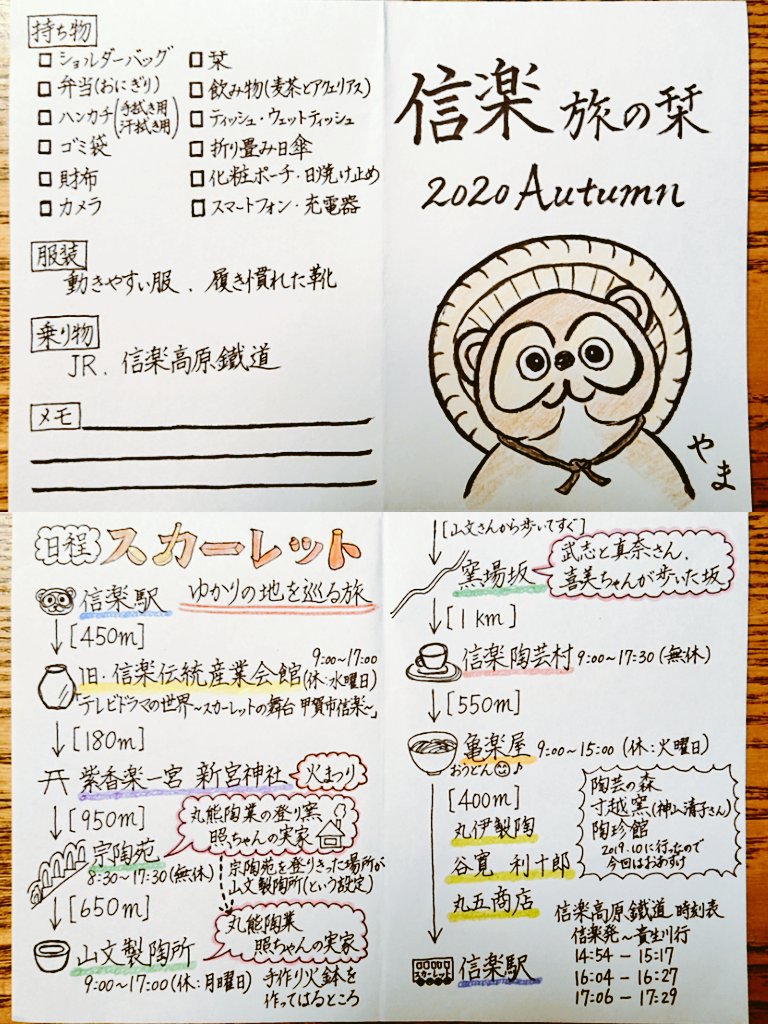 持ち物
□ ショルダーバッグ
□ 弁当(おにぎり)
□ ハンカチ(手拭き用
汗拭き用)
□ ゴミ袋
□ 財布
□ カメラ
□ 栞
□ 飲み物(麦茶とアクエリアス)
□ ティッシュ・ウェットティッシュ
□ 折り畳み日傘
□ 化粧ポーチ・日焼け止め
□ スマートフォン・充電器
服装
動きやすい服、履き慣れた靴
乗り物
JR、信楽高原鐵道
メモ
信楽 旅の栞
2020 Autumn
やま
日程 スカーレット
ゆかりの地を巡る旅
信楽駅
↓[450m]
旧・信楽伝統産業会館 9:00~17:00
(休:水曜日)
「テレビドラマの世界~スカーレットの舞台 甲賀市信楽~」
↓[180m]
紫香楽一宮 新宮神社 火まつり
↓[950m]
丸熊陶業の登り窯
照ちゃんの実家
宗陶苑
8:30~17:30(無休)
宗陶苑を登りきった場所が
山文製陶所(という設定)
↓[650m]
丸熊陶業
照ちゃんの実家
山文製陶所
9:00~17:00(休:月曜日)
手作り火鉢を
作ってはるところ
↓[山文さんから歩いてすぐ]
窯場坂
武志と真奈さん、
喜美ちゃんが歩いた坂
↓[1km]
信楽陶芸村 9:00~17:30(無休)
↓[550m]
亀楽屋 9:00~15:00(休:火曜日)
おうどん♪
↓[400m]
丸伊製陶
谷寛 利十郎
丸五商店
陶芸の森
寸越窯(神山清子さん)
陶珍館
2019.10に行ったので
今回はおあずけ
スカーレット
信楽駅
信楽高原鐵道 時刻表
信楽発~貴生川行
14:54 - 15:17
16:04 - 16:27
17:06 - 17:29